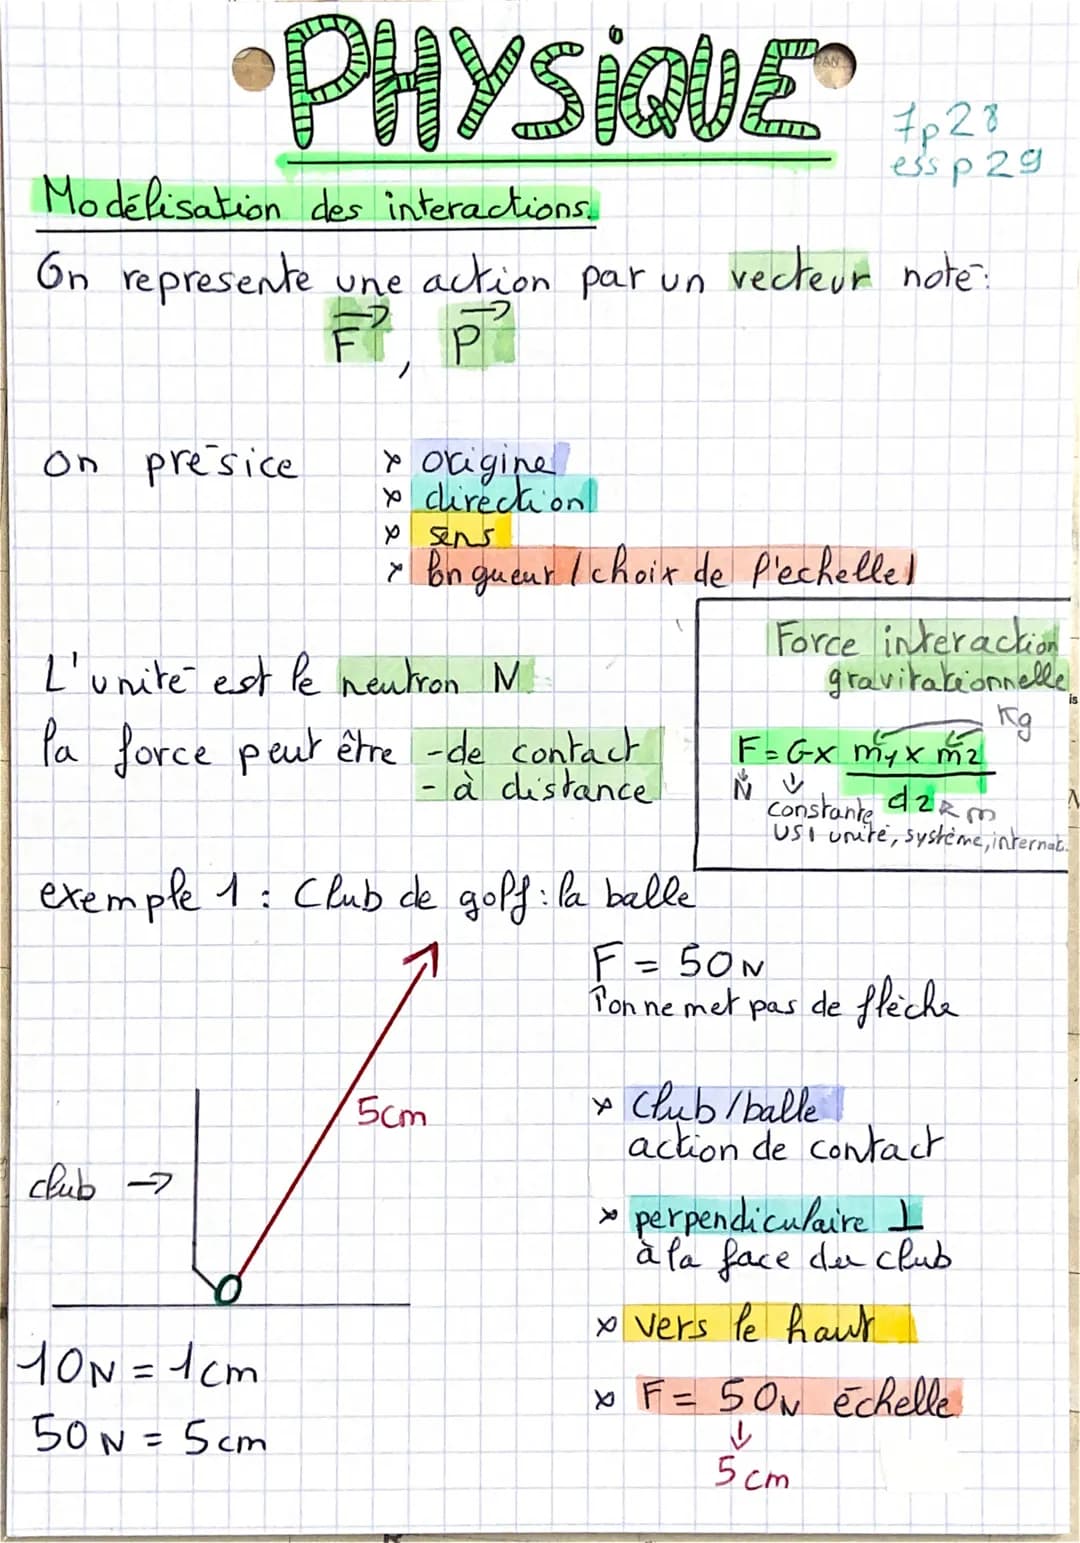 PHYSIQUE
7p28
ess p29
Modélisation des interactions.
On represente une action par un vecteur noté:
F→, P→
on présice
x origine
x direction
x sens
x longueur (choix de l'echelle)
L'unité est le neutron N
la force peut être -de contact
- à distance
Force interaction
gravitationnelle
Kg
F=Gx m1 x m2
N
d2 m
constante
USI unité, système, internat.
exemple 1 : Club de golf: la balle
F = 50N
l'on ne met pas de flèche
5cm
club →
x Club/balle
action de contact
x perpendiculaire ⊥
à la face du club
x vers le haut
x F = 50N échelle
↓
5cm
10N = 1cm
50N = 5cm